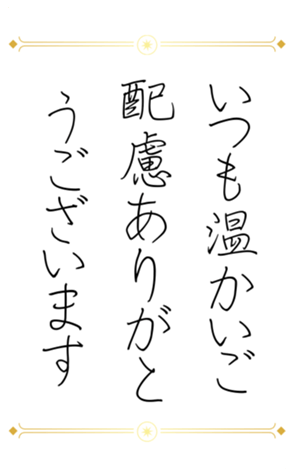 いつも温かいご
配慮ありがと
うございます